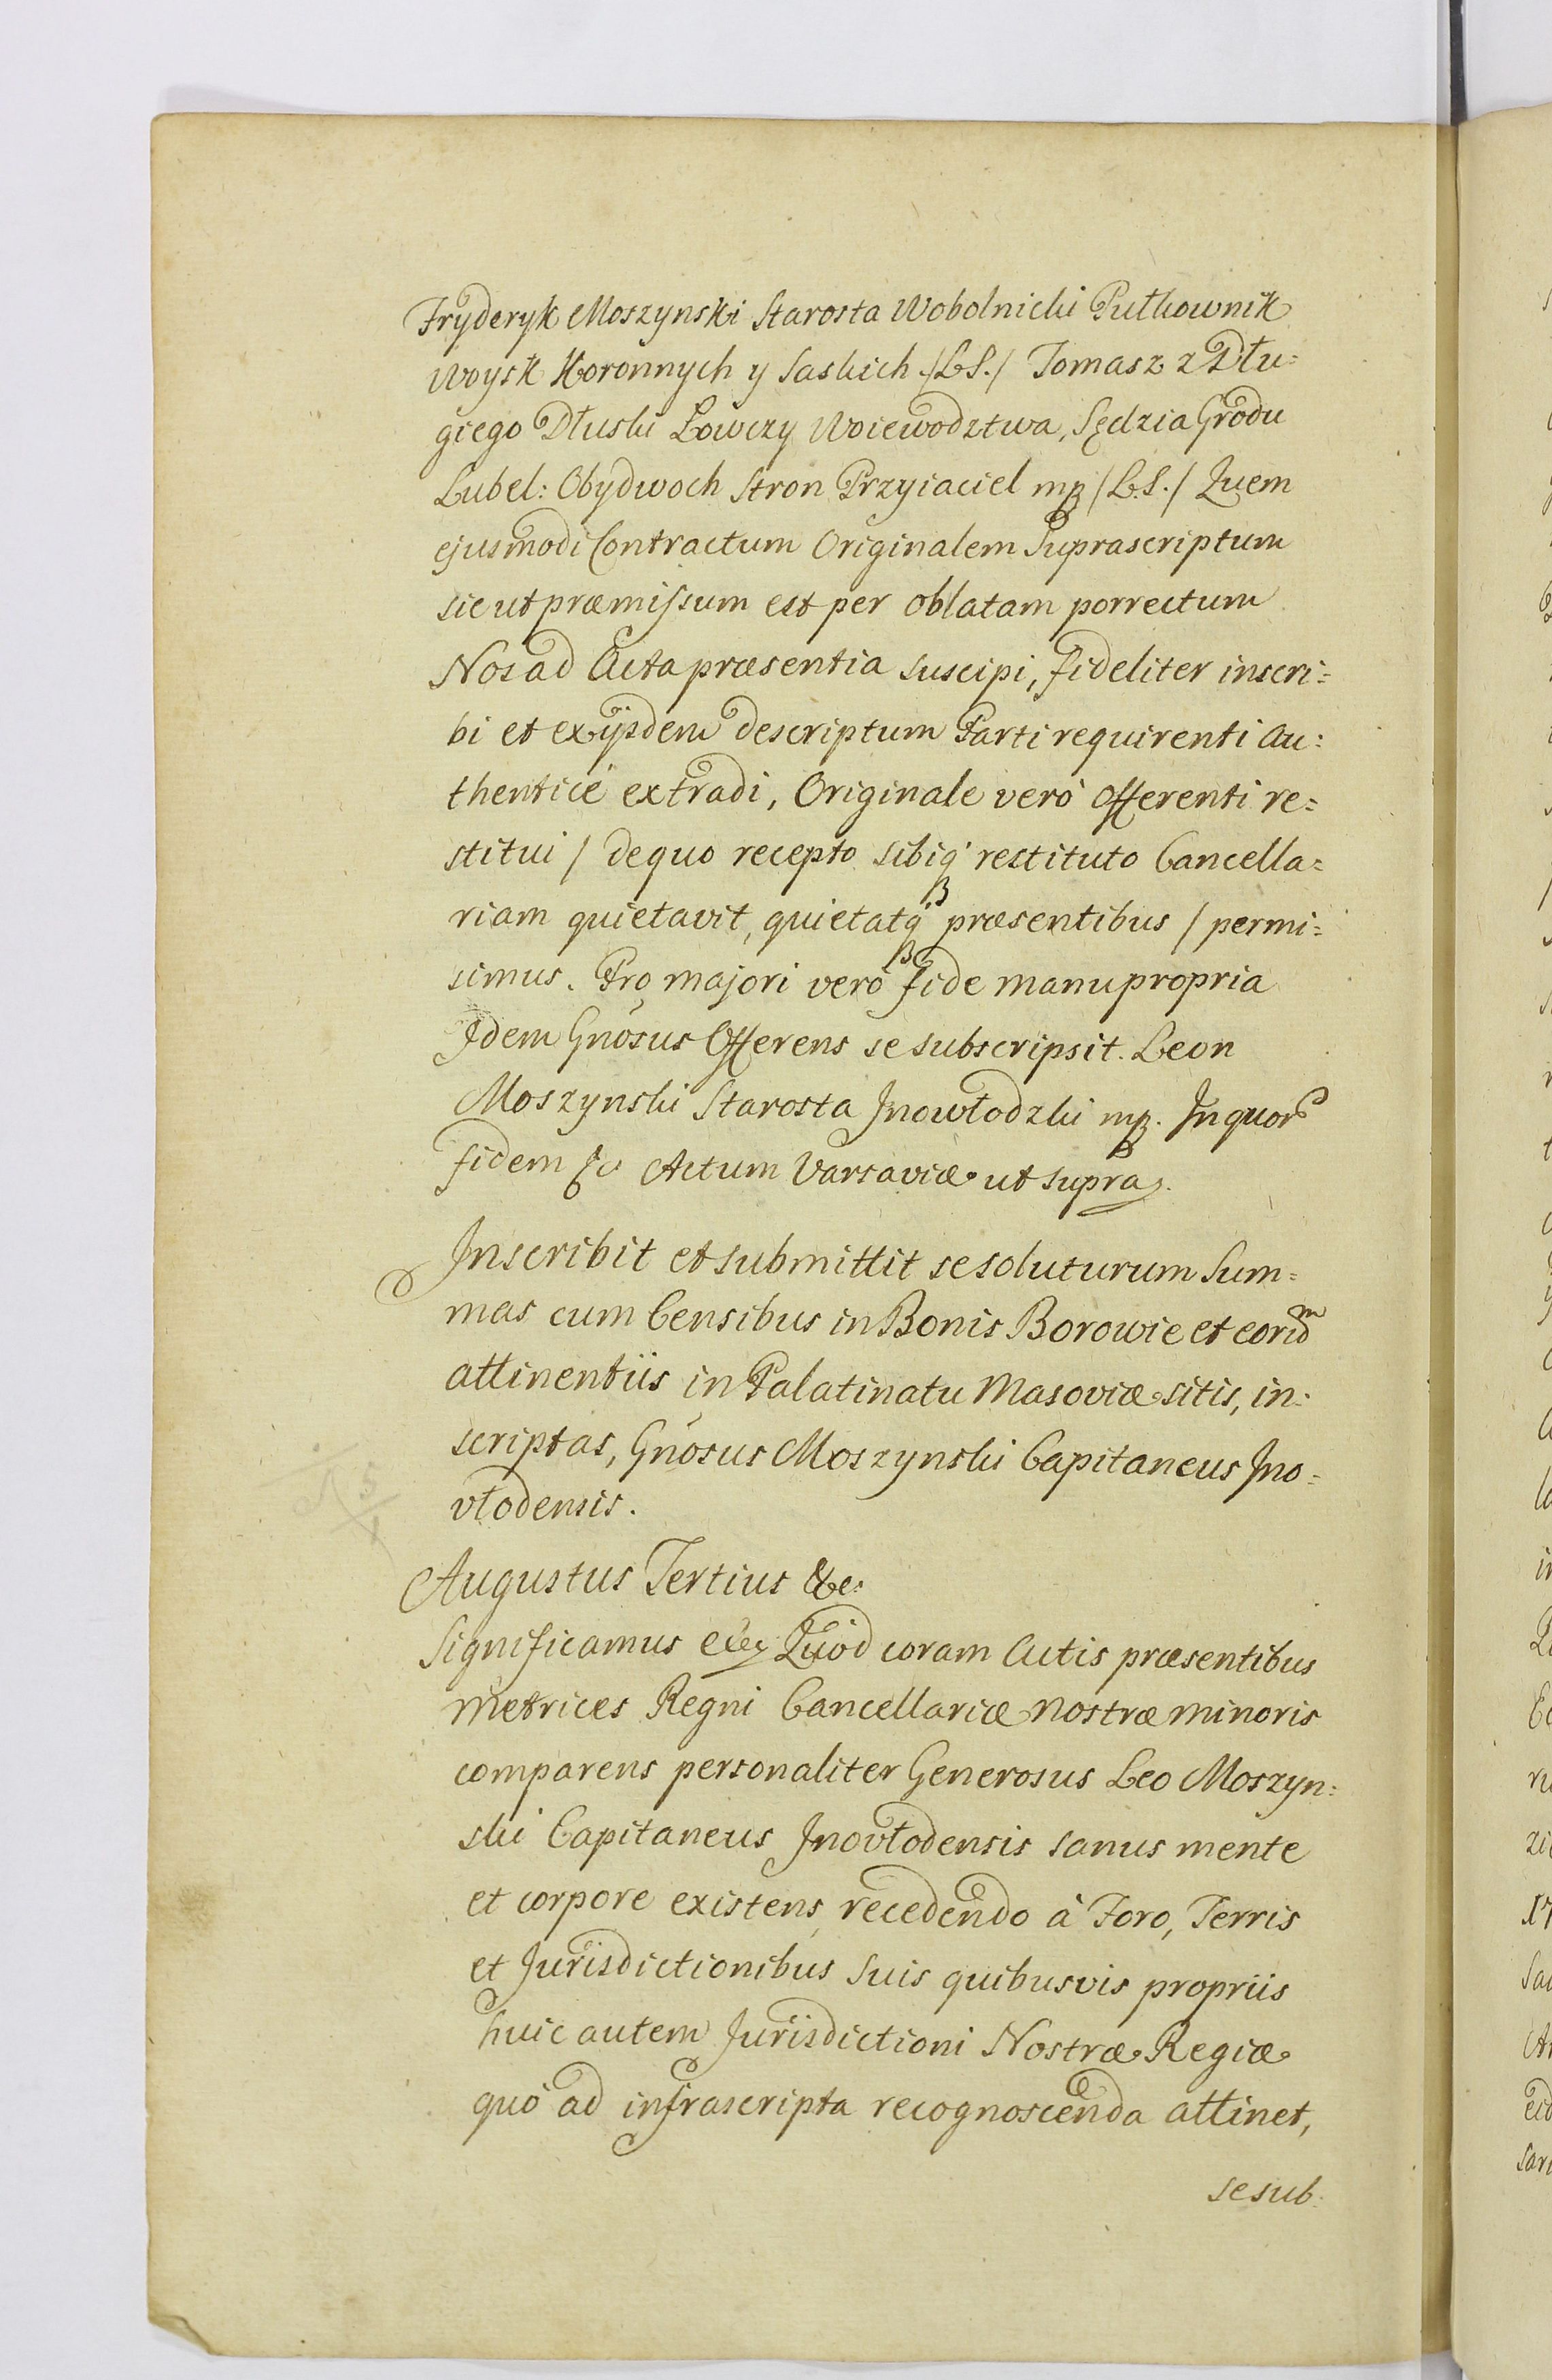 Fryderyk Moszynski Starosta Wobolnicki Pułkownik
Woysk Koronnych y Saskich /L.S./ Tomasz z Dłu=
giego Dłuski Łowczy Woiewodztwa, Sędzia Grodu
Lubel: Obydwoch Stron Przyiaciel mp /L.S./ Quem
ejusmodi Contractum Originalem Suprascriptum
sicut præmissum est per oblatam porrectum
Nos ad Acta præsentia suscipi, fideliter inscri=
bi et ex ijsdem descriptum Parti requirenti au=
thenticè extradi, Originale verò Offerenti re=
stitui / de quo recepto sibiq' restituto Cancella=
riam quietavit, quietatq' præsentibus / permi=
simus. Pro majori verò fide manu propria
Idem Gnosus Offerens se subscripsit. Leon
Moszynski Starosta Jnowłodzki mp. In quor
fidem &c Actum Varsaviæ ut supra.
Inscribit et submittit se soluturum Sum=
mas cum Censibus in Bonis Borowie et eorund
attinentiis in Palatinatu Masoviæ sitis, in=
scriptas, Gnosus Moszynski Capitaneus Jno=
vłodensis.
Augustus Tertius &c:
Significamus etc Quòd coram Actis præsentibus
Metrices Regni Cancellariæ Nostræ Minoris
comparens personaliter Generosus Leo Moszyn=
ski Capitaneus Jnovłodensis sanus mente
et corpore existens, recedendo à Foro, Terris
et Jurisdictionibus Suis quibusvis propriis
huic autem Jurisdictioni Nostræ Regiæ
quò ad infrascripta recognoscenda attinet,
se sub=